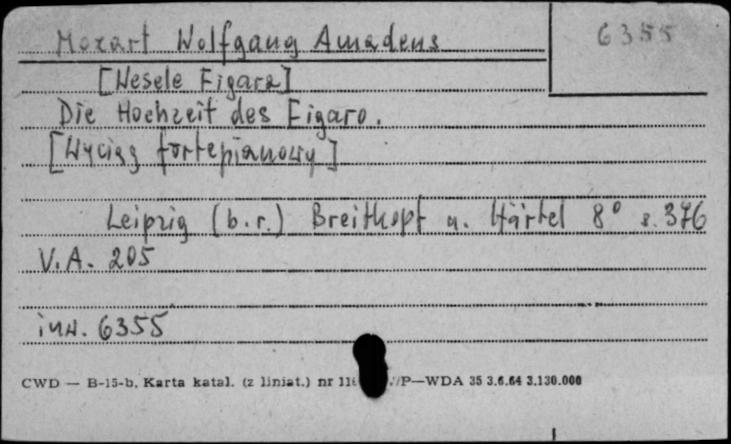 Mozart Wolfgang Amadeus 6355
[Wesele Figara]
Die Hochzeit des Figaro.
[Wyciąg fortepianowy]
Leipzig (b.r.) Breitkopf u. Härtel 8° s. 376
V.A. 205
inw. 6355
CWD — B-15-b, Karta katal. (z liniat.) nr /P—WDA 35 3.6.64 3.130.000